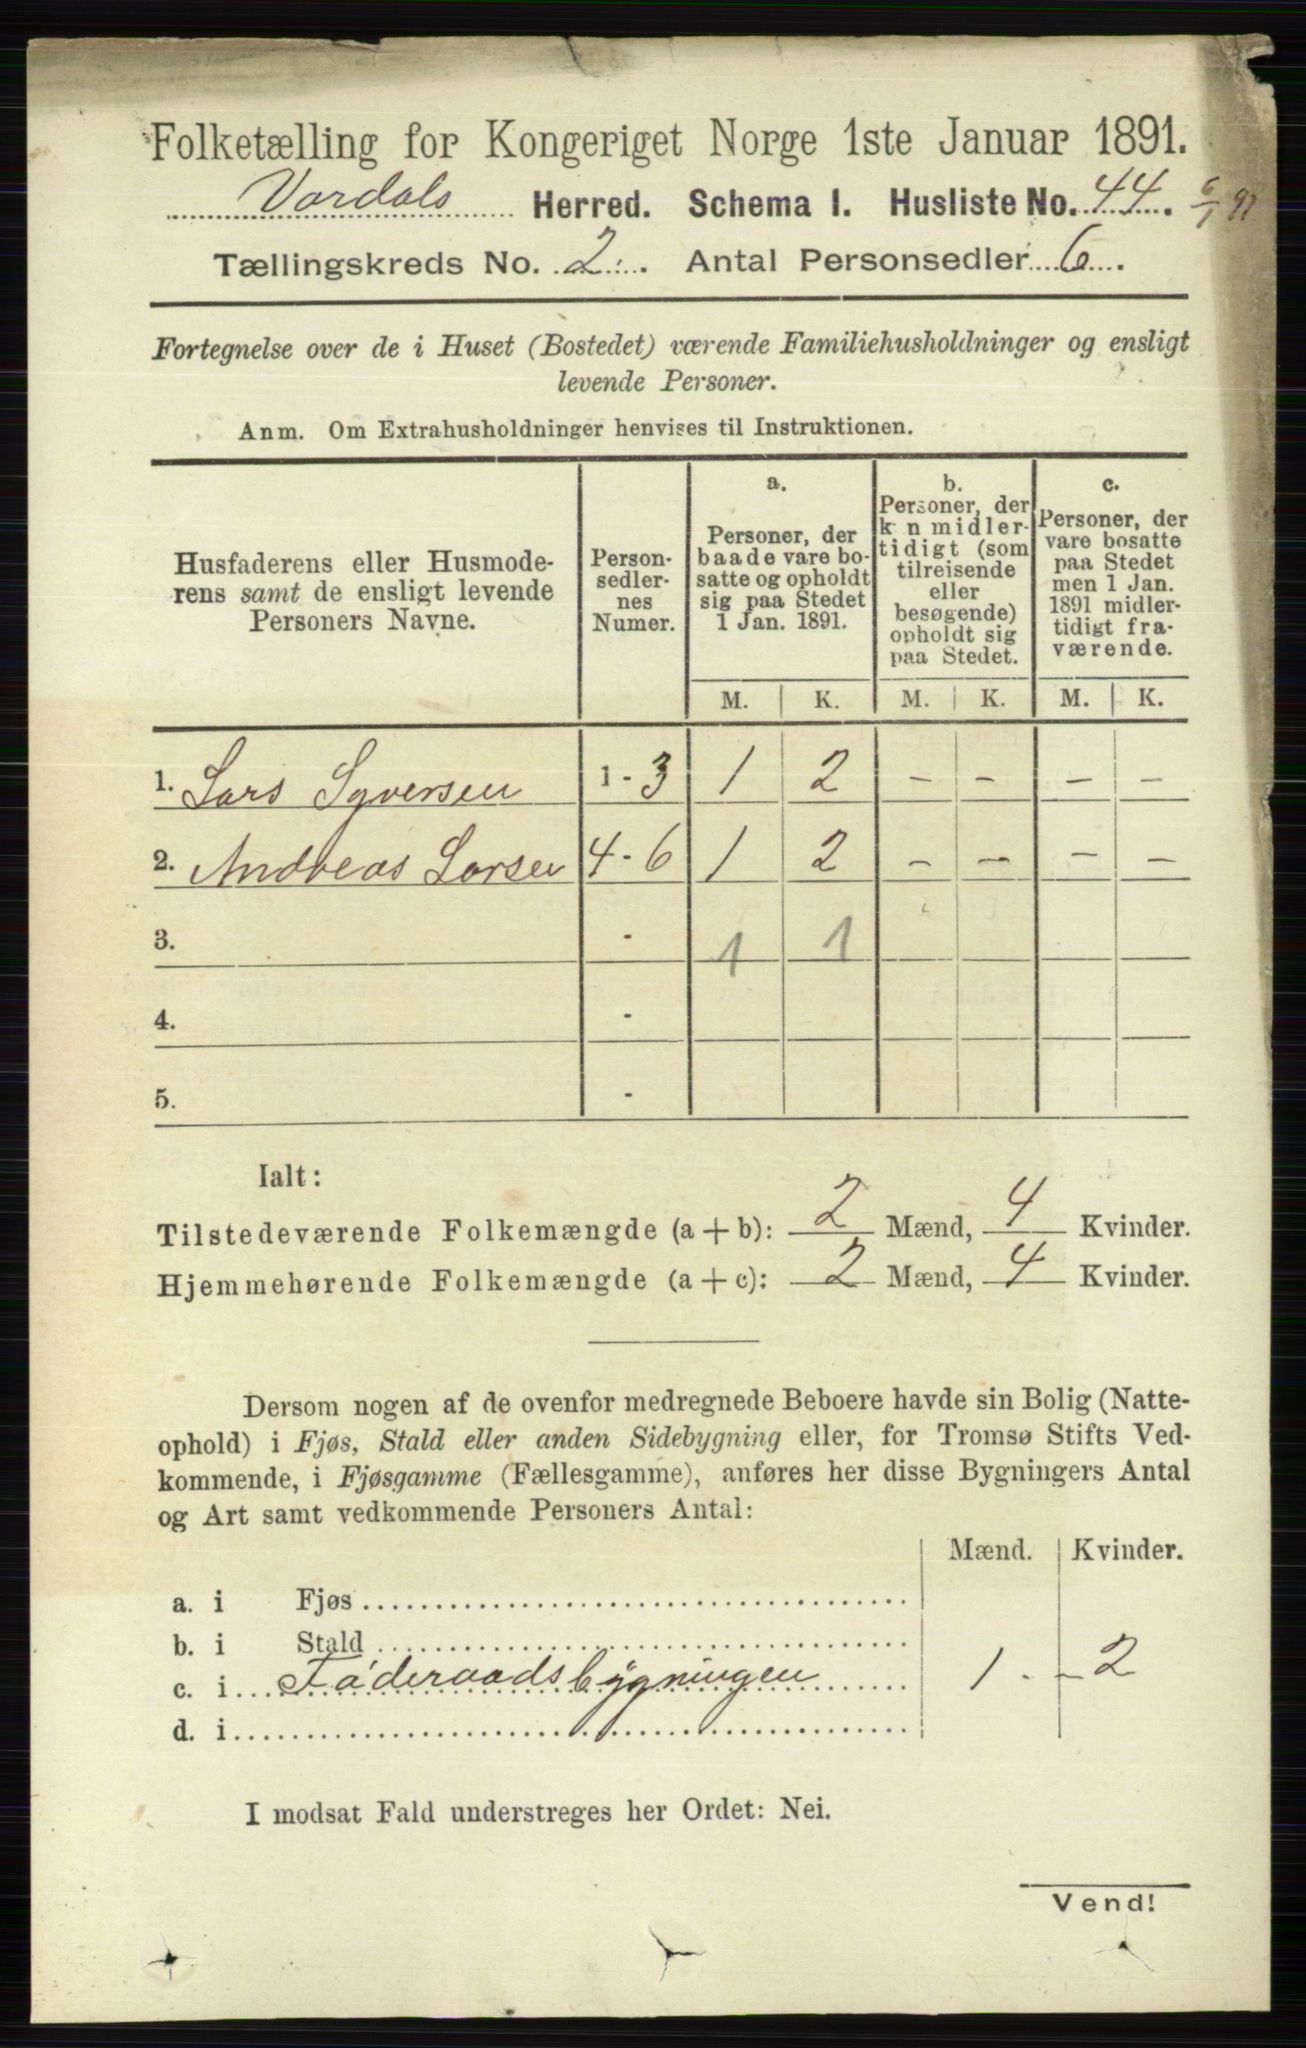 Folketælling for Kongeriget Norge 1ste Januar 1891.
Vardals Herred. Schema I. Husliste No. 44. 6/1 91
Tællingskreds No. 2. Antal Personsedler 6.
Fortegnelse over de i Huset (Bostedet) værende Familiehusholdninger og ensligt
levende Personer.
Anm. Om Extrahusholdninger henvises til Instruktionen.
Husfaderens eller Husmode-
rens samt de ensligt levende
Personers Navne.
Person-
sedler-
nes
Numer.
a.
Personer, der
baade vare bo-
satte og opholdt
sig paa Stedet
1 Jan. 1891.
b.
Personer, der
k n midler-
tidigt (som
tilreisende
eller
besøgende)
opholdt sig
paa Stedet.
c.
Personer, der
vare bosatte
paa Stedet
men 1 Jan.
1891 midler-
tidigt fra-
værende.
M. K. M. K. M. K.
1. Lars Syversen 1 - 3 1 2 – – – –
2. Andreas Larsen 4 - 6 1 2 – – – –
3. - 1 1
4. -
5. -
Ialt:
Tilstedeværende Folkemængde (a + b): 2 Mænd, 4 Kvinder.
Hjemmehørende Folkemængde (a + c): 2 Mænd, 4 Kvinder.
Dersom nogen af de ovenfor medregnede Beboere havde sin Bolig (Natte-
ophold) i Fjøs, Stald eller anden Sidebygning eller, for Tromsø Stifts Ved-
kommende, i Fjøsgamme (Fællesgamme), anføres her disse Bygningers Antal
og Art samt vedkommende Personers Antal:
Mænd. Kvinder.
a. i Fjøs
b. i Stald
c. i Føderaadsbygningen 1 - - 2
d. i
I modsat Fald understreges her Ordet: Nei.
Vend!